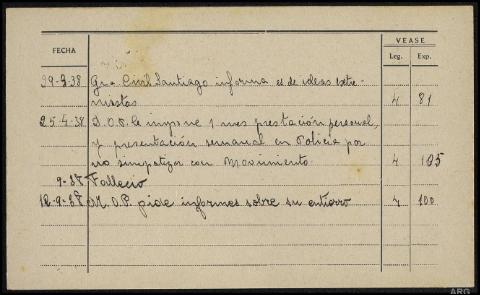 FECHA
VEASE
Leg. Exp.
29-3-38 Gua Civil Santiago informa es de ideas extre-
mistas 4 81
25-4-38 D.O.P. le impone 1 mes prestación personal,
y presentación semanal en Policia por
no simpatizar con Movimiento 4 105
9-38 Fallecio
12-9-38 M.O.P. pide informes sobre su entierro 7 100
ARG